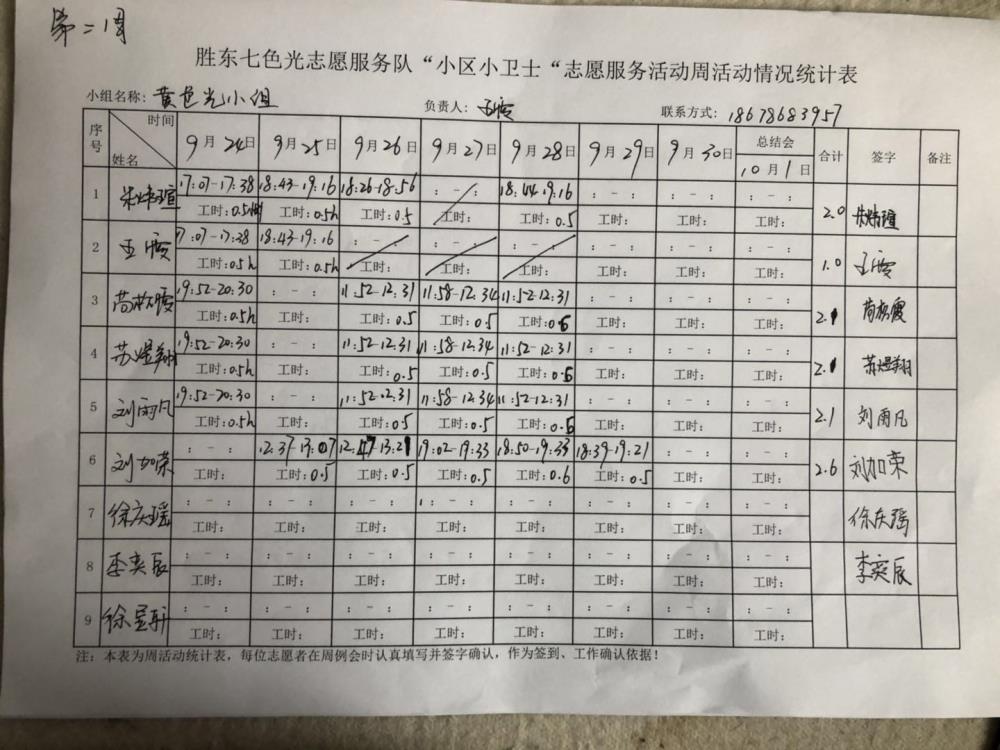 第二周
胜东七色光志愿服务队“小区小卫士“志愿服务活动周活动情况统计表
小组名称: 黄色光小组 负责人: 王霞 联系方式: 18678683957
序号 时间 姓名 9月24日 9月25日 9月26日 9月27日 9月28日 9月29日 9月30日 总结会 10月1日 合计 签字 备注
1 17:07-17:38 18:43-19:16 18:26-18:56 : - : 18:44-19:16 : - : : - : : - :
工时:0.5h 工时:0.5h 工时:0.5 工时: 工时:0.5 工时: 工时: 工时: 2.0
2 王霞 17:07-17:38 18:43-19:16 : - : : - : : - : : - : : - : : - :
工时:0.5h 工时:0.5h 工时: 工时: 工时: 工时: 工时: 工时: 1.0 王霞
3 19:52-20:30 : - : 11:52-12:31 11:58-12:34 11:52-12:31 : - : : - : : - :
工时:0.5h 工时: 工时:0.5 工时:0.5 工时:0.6 工时: 工时: 工时: 2.1
4 苏煜翔 19:52-20:30 : - : 11:52-12:31 11:58-12:34 11:52-12:31 : - : : - : : - :
工时:0.5h 工时: 工时:0.5 工时:0.5 工时:0.6 工时: 工时: 工时: 2.1 苏煜翔
5 刘雨凡 19:52-20:30 : - : 11:52-12:31 11:58-12:34 11:52-12:31 : - : : - : : - :
工时:0.5h 工时: 工时:0.5 工时:0.5 工时:0.6 工时: 工时: 工时: 2.1 刘雨凡
6 刘加荣 : - : 12:37-13:07 12:47-13:21 19:02-19:33 18:50-19:33 18:39-19:21 : - : : - :
工时: 工时:0.5 工时:0.5 工时:0.5 工时:0.6 工时:0.5 工时: 工时: 2.6 刘加荣
7 徐庆瑶 : - : : - : : - : : - : : - : : - : : - : : - :
工时: 工时: 工时: 工时: 工时: 工时: 工时: 工时: 徐庆瑶
8 李奕辰 : - : : - : : - : : - : : - : : - : : - : : - :
工时: 工时: 工时: 工时: 工时: 工时: 工时: 工时: 李奕辰
9 徐昱轩 : - : : - : : - : : - : : - : : - : : - : : - :
工时: 工时: 工时: 工时: 工时: 工时: 工时: 工时:
注: 本表为周活动统计表，每位志愿者在周例会时认真填写并签字确认，作为签到、工作确认依据！